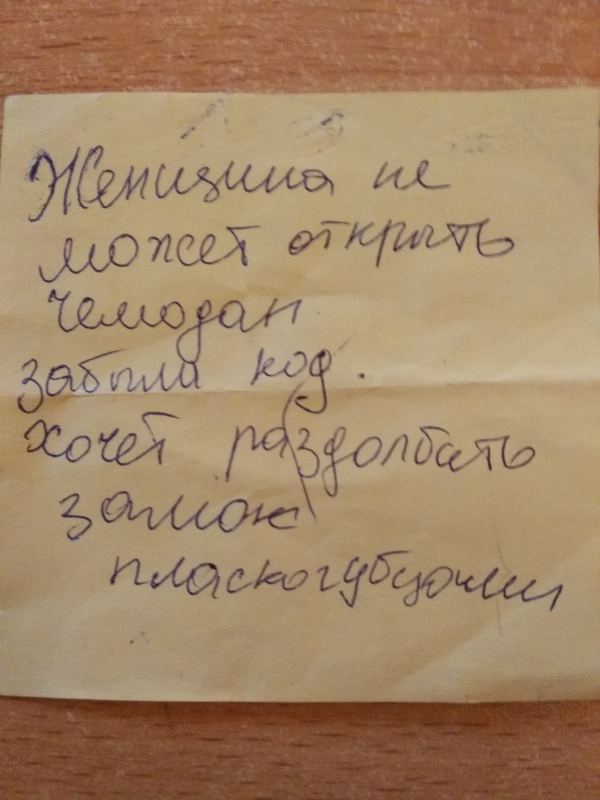 Женщина не
может открыть
чемодан
забыла код.
хочет раздолбать
замок
плоскогубцами